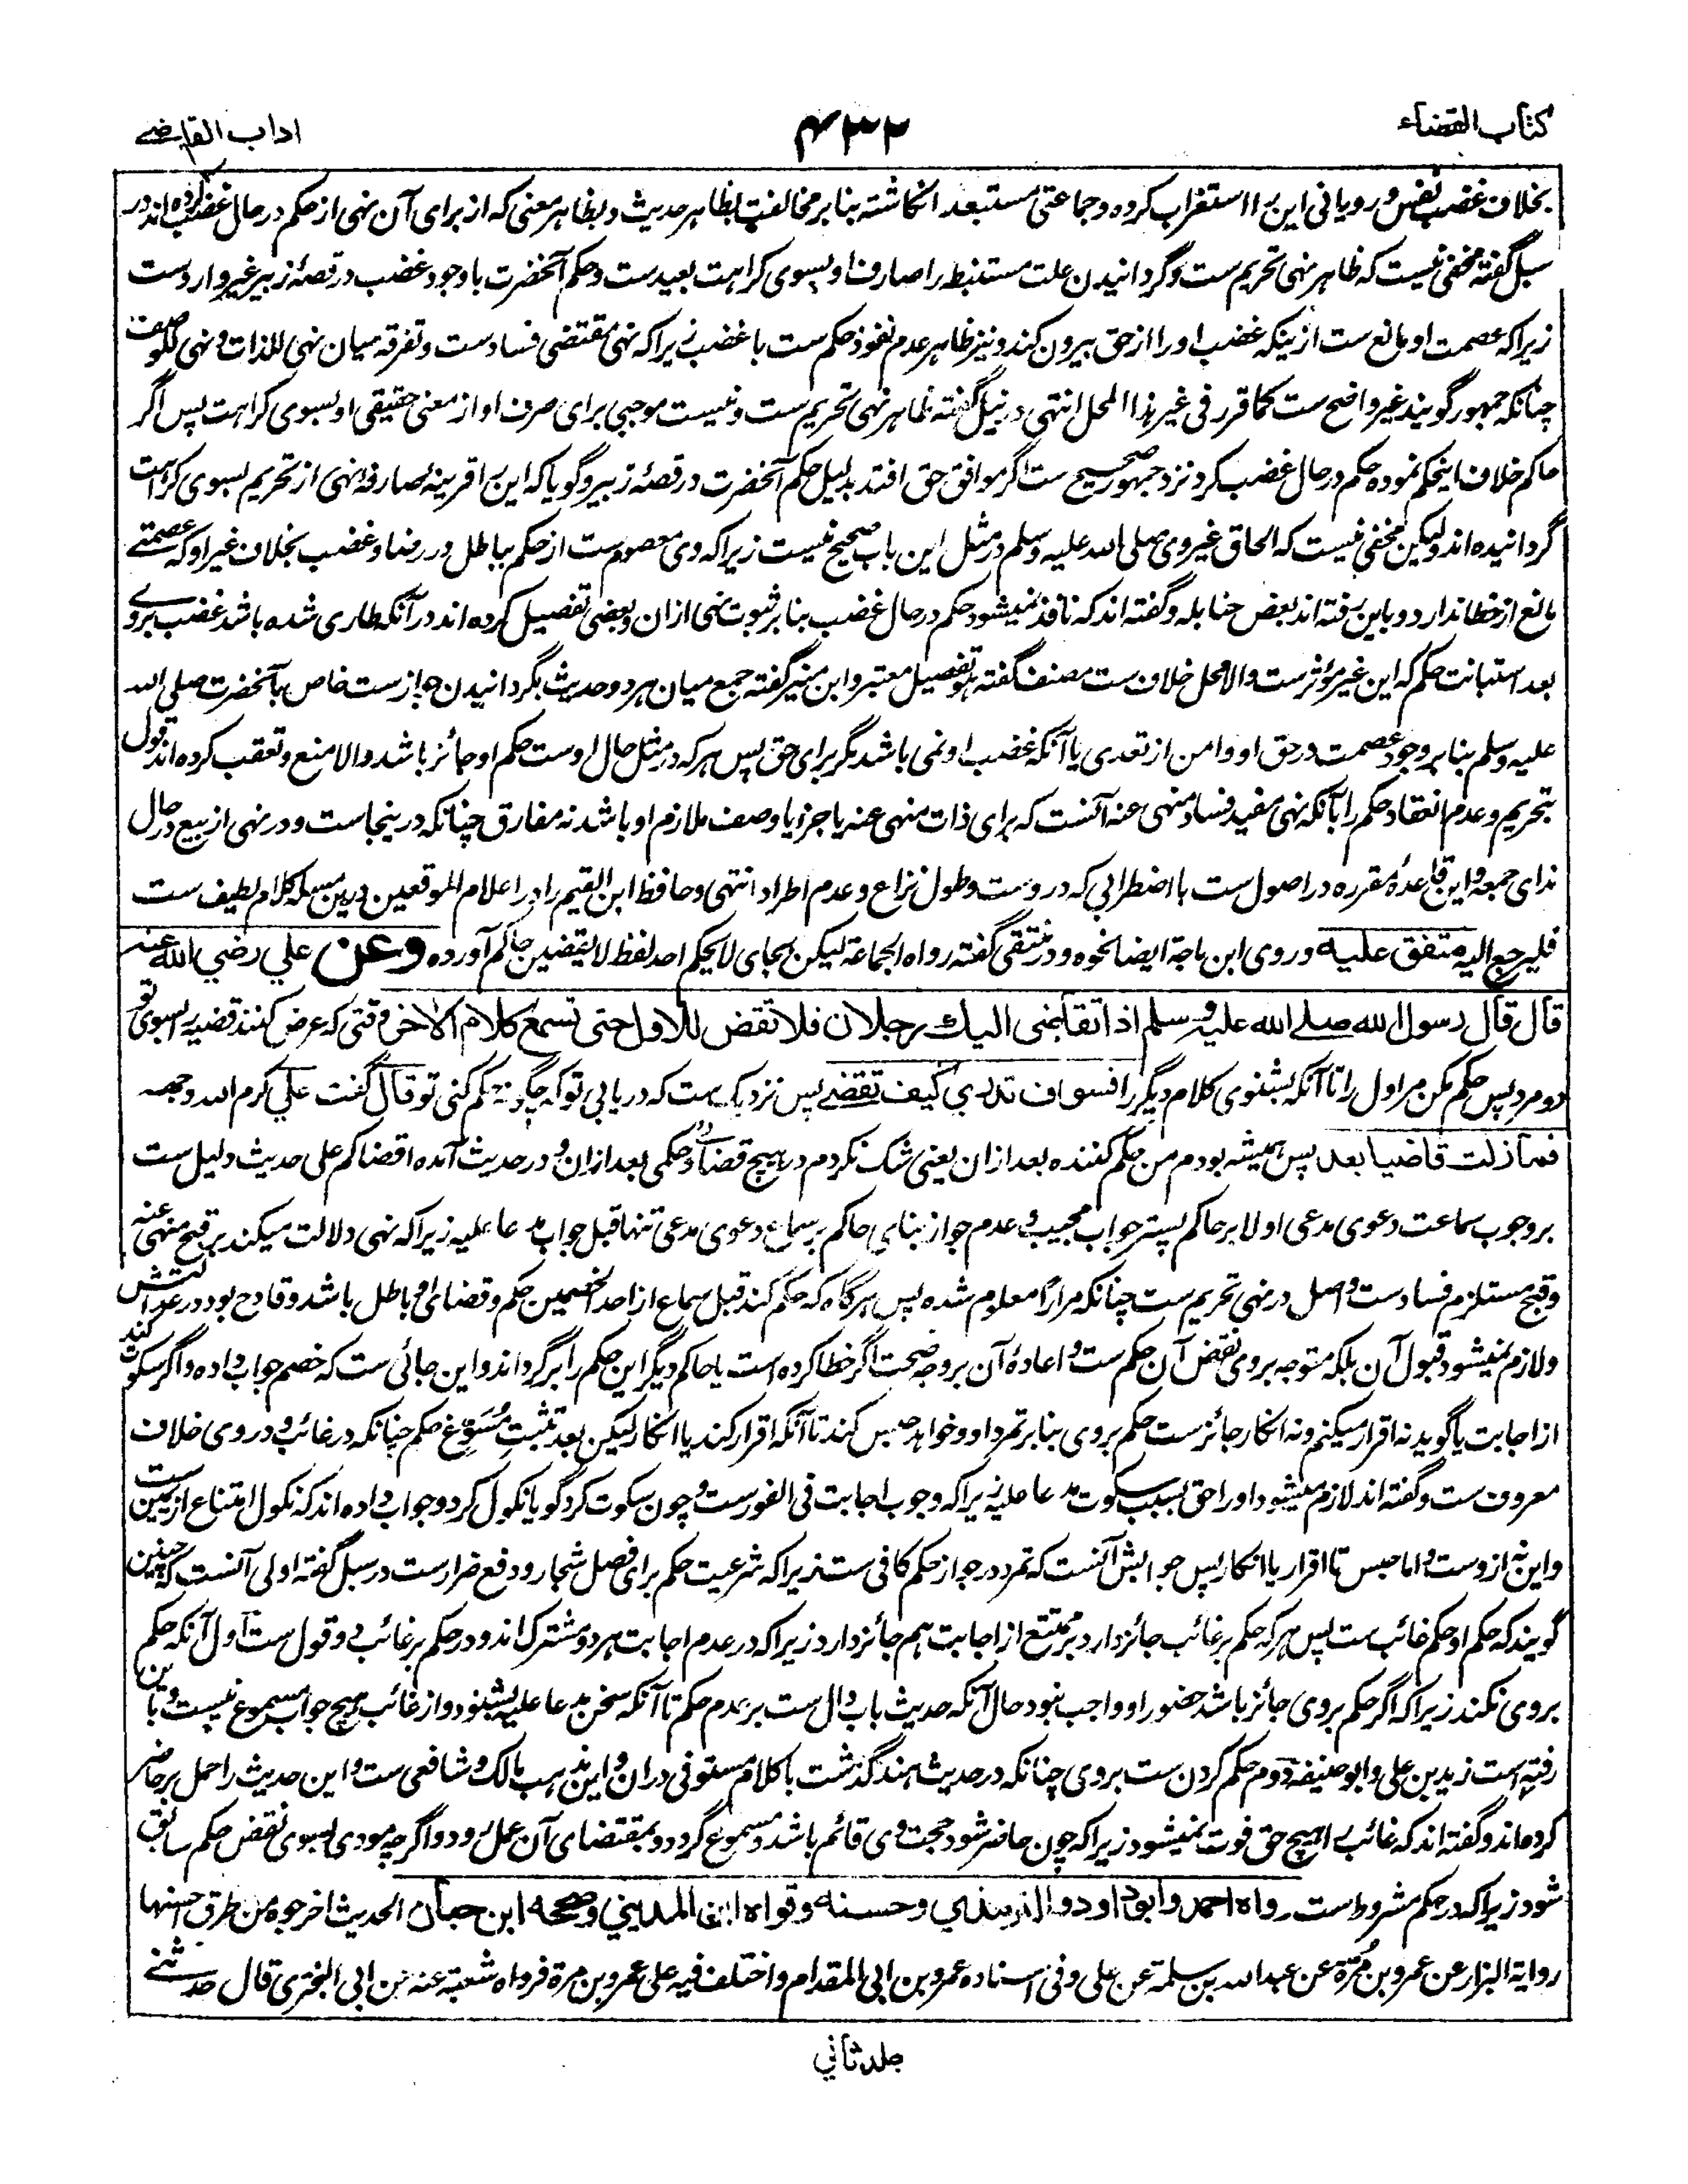 كتاب القضاء
۴۳۲
اداب القاضے
بخلاف غضب نفس و رویانی این را استغراب کرده و جماعتی مستبعد انگاشته بنا بر مخالفت بظاهر حدیث و بظاهر معنی که از برای آن نهی از حکم در حال غضب کرده اند در
سبل گفته مخفی نیست که ظاهر نهی تحریم ست و گردانیدن علت مستنبط را صارف او بسوی کراهت بعیدست و حکم آنحضرت با وجود غضب در قصهٔ زبیر غیر وارد ست
زیراکه عصمت او مانع ست ازینکه غضب او را از حق بیرون کند و نیز ظاهر عدم نفوذ حکم ست با غضب زیراکه نهی مقتضی فسادست و تفرقه میان نهی للذات و نهی للوصف
چنانکه جمهور گویند غیر واضح ست کما قرر فی غیر هذا المحل انتهی در نیل گفته ظاهر نهی تحریم ست و نیست موجبی برای صرف او از معنی حقیقی او بسوی کراهت پس اگر
حاکم خلاف اینحکم نموده حکم در حال غضب کرد نزد جمهور صحیح ست اگر موافق حق افتد بدلیل حکم آنحضرت در قصهٔ زبیر و گویا که این را قرینهٔ صارفه نهی از تحریم بسوی کراهت
گردانیده اند ولیکن مخفی نیست که الحاق غیر وی صلی الله علیه وسلم در مثل این باب صحیح نیست زیراکه وی معصوم ست از حکم بباطل در رضا و غضب بخلاف غیر او که عصمتے
مانع از خطا ندارد و باین رفته اند بعض حنابله و گفته اند که نافذ نمیشود حکم در حال غضب بنا بر ثبوت نهی ازان و بعضی تفصیل کرده اند در آنکه طاری شده باشد غضب بر وے
بعد استبانت حکم که این غیر مؤثرست والا محل خلاف ست مصنف گفته هو تفصیل معتبر و ابن منیر گفته جمع میان هر دو حدیث بگردانیدن جواز ست خاص بآنحضرت صلی الله
علیه وسلم بنا بر وجود عصمت در حق او و امن از تعدی یا آنکه غضب او نمی باشد مگر برای حق پس هر که در مثل حال اوست حکم او جائز باشد والا منع و تعقب کرده اند قول
بتحریم و عدم انعقاد حکم را بآنکه نهی مفید فساد منهی عنه آنست که برای ذات منهی عنه یا جزء یا وصف ملازم او باشد نه مفارق چنانکه درینجاست و در نهی از بیع در حال
ندای جمعه و این قاعدهٔ مقرره در اصول ست با اضطرابی که دروست و طول نزاع و عدم اطراد انتهی و حافظ ابن القیم را در اعلام الموقعین درین مسئله کلام لطیف ست
فلیرجع الیه متفق علیه و روی ابن ماجة ایضا نحوه و در منتقی گفته رواه الجماعة لیکن بجای لا یحکم احد لفظ لا یقضین حاکم آورده وعن علي رضي الله عنه
قال قال رسول الله صلے الله علیه وسلم اذا تقاضى اليك رجلان فلا تقض للاول حتى تسمع كلام الآخر وقتی که عرض کنند قضیه را بسوی تو
دو مرد پس حکم مکن مر اول را تا آنکه بشنوی کلام دیگر را فسوف تدري كيف تقضے پس نزدیک ست که دریابی تو که چگونه حکم کنی تو قال گفت علي كرم الله وجهه
فما زلت قاضيا بعد پس همیشه بودم من حکم کننده بعد ازان یعنی شک نکردم در هیچ قضا و حکمی بعد ازان و در حدیث آمده اقضاکم علی حدیث دلیل ست
بر وجوب سماعت دعوی مدعی اولا بر حاکم پستر جواب مجیب و عدم جواز بنای حاکم بر سماع دعوی مدعی تنها قبل جواب مدعا علیه زیراکه نهی دلالت میکند بر قبح منهی عنه
و قبح مستلزم فسادست و اصل در نهی تحریم ست چنانکه مرارًا معلوم شده پس هرگاه که حکم کند قبل سماع از احد الخصمین حکم و قضای او باطل باشد و قادح بود در عدالتش
و لازم نمیشود قبول آن بلکه متوجه بروی نقض آن حکم ست و اعادهٔ آن بر وجه صحت اگر خطا کرده است یا حاکم دیگر این حکم را برگرداند و این جائی ست که خصم جواب داده و اگر سکوت کند
از اجابت یا گوید نه اقرار میکنم و نه انکار جائزست حکم بروی بنا بر تمرد او و خواهد حبس کند تا آنکه اقرار کند یا انکار لیکن بعد تثبت مُسَوِّغ حکم چنانکه در غائب و در وی خلاف
معروف ست و گفته اند لازم میشود او را حق بسبب سکوت مدعا علیه زیراکه وجوب اجابت فی الفورست و چون سکوت کرد گویا نکول کرد و جواب داده اند که نکول امتناع از یمین ست
و این نه ازوست و اما حبس تا اقرار یا انکار پس جوابش آنست که تمرد در جواز حکم کافی ست زیراکه شرعیت حکم برای فصل شجار و دفع ضرارست در سبل گفته اولی آنست که چنین
گویند که حکم او حکم غائب ست پس هر که حکم بر غائب جائز دارد بر ممتنع از اجابت هم جائز دارد زیراکه در عدم اجابت هر دو مشترک اند و در حکم بر غائب دو قول ست اول آنکه حکم
بروی نکند زیراکه اگر حکم بروی جائز باشد حضور او واجب نبود حال آنکه حدیث باب دال ست بر عدم حکم تا آنکه سخن مدعا علیه بشنود و از غائب هیچ جواب مسموع نیست و باین
رفته است زید بن علی و ابو حنیفه دوم حکم کردن ست بروی چنانکه در حدیث هند گذشت با کلام مستوفی دران و این مذهب مالک و شافعی ست و این حدیث را حمل بر حاضر
کرده اند و گفته اند که غائب را هیچ حق فوت نمیشود زیراکه چون حاضر شود حجت وی قائم باشد و مسموع گردد و بمقتضای آن عمل رود و اگرچه مودی بسوی نقض حکم سابق
شود زیراکه در حکم مشروط است رواه احمد وابو داود والترمذي وحسنه وقواه ابن المديني وصححه ابن حبان الحدیث اخرجوه من طرق احسنها
رواية البزار عن عمرو بن مُرّة عن عبد الله بن سلمة عن علی و فی اسناده عمرو بن ابی المقدام واختلف فيه علی عمرو بن مرة فرواه شعبة عنه عن ابی البختری قال حدثنے
جلد ثاني